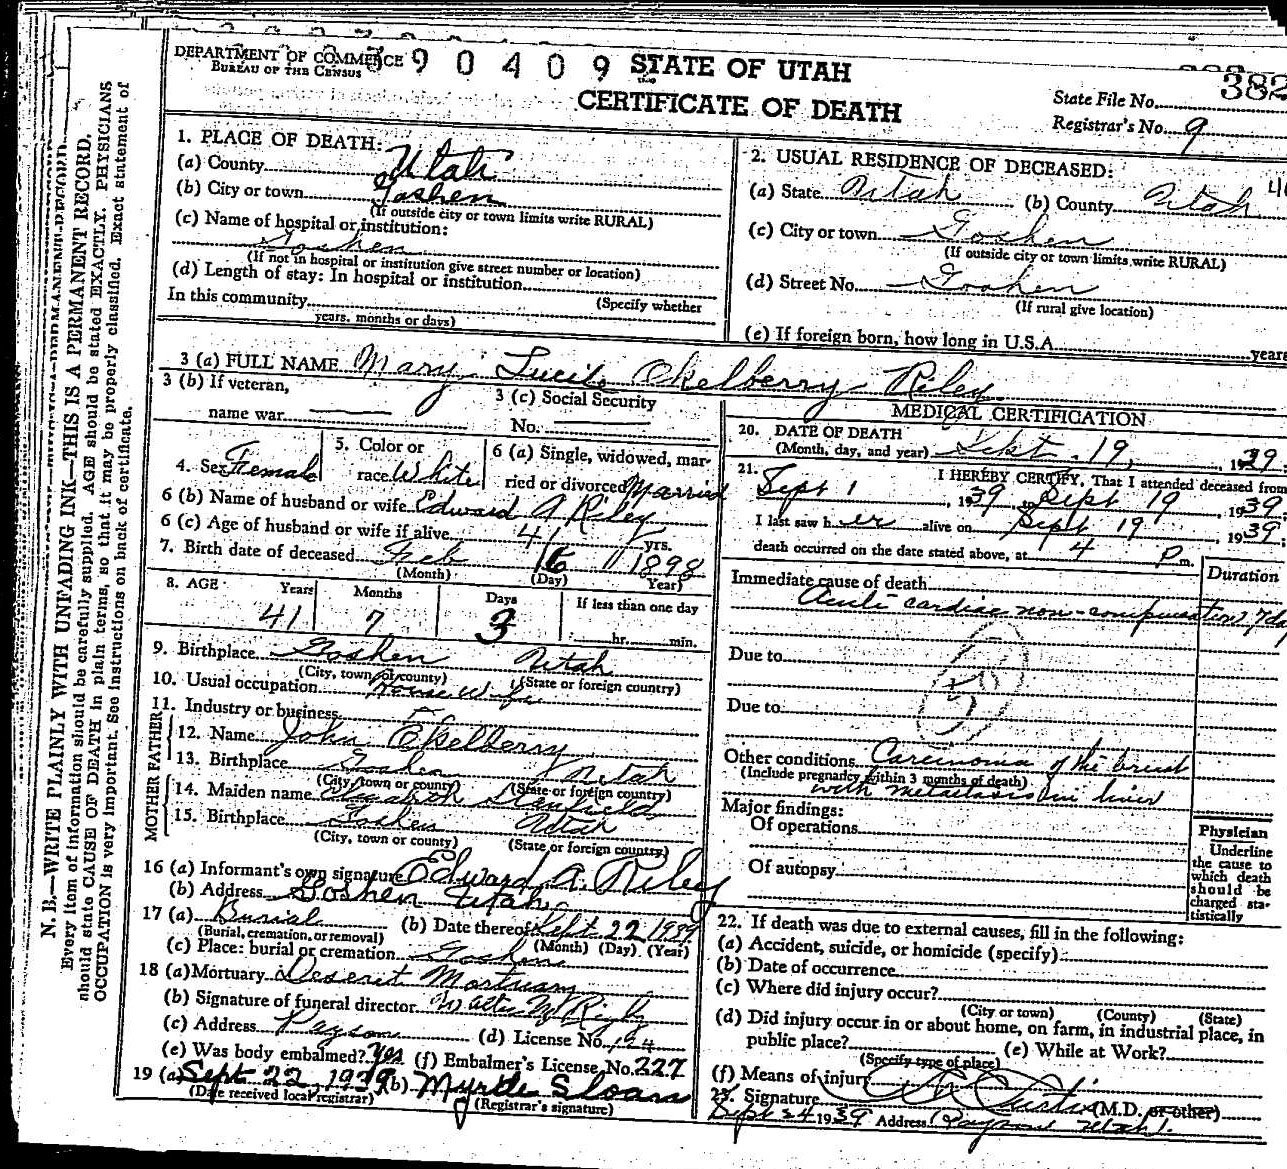 DEPARTMENT OF COMMERCE
BUREAU OF THE CENSUS
390409
STATE OF UTAH
CERTIFICATE OF DEATH
State File No. 382
Registrar's No. 9
1. PLACE OF DEATH:
(a) County Utah
(b) City or town Goshen
(If outside city or town limits write RURAL)
(c) Name of hospital or institution:
Goshen
(If not in hospital or institution give street number or location)
(d) Length of stay: In hospital or institution
(Specify whether
In this community
years, months or days)
2. USUAL RESIDENCE OF DECEASED:
(a) State Utah (b) County Utah
(c) City or town Goshen
(If outside city or town limits write RURAL)
(d) Street No. Goshen
(If rural give location)
(e) If foreign born, how long in U.S.A. years
3 (a) FULL NAME Mary Lucile Okelberry Riley
3 (b) If veteran,
name war
3 (c) Social Security
No.
4. Sex Female
5. Color or
race White
6 (a) Single, widowed, mar-
ried or divorced Married
6 (b) Name of husband or wife Edward A Riley
6 (c) Age of husband or wife if alive 41 yrs.
7. Birth date of deceased Feb 16 1898
(Month) (Day) Year)
8. AGE Years Months Days If less than one day
41 7 3 hr. min.
9. Birthplace Goshen Utah
(City, town, or county) (State or foreign country)
10. Usual occupation House Wife
11. Industry or business
FATHER
12. Name John Okelberry
13. Birthplace Goshen Utah
(City, town or county) (State or foreign country)
MOTHER
14. Maiden name Elizabeth Stanfield
15. Birthplace Goshen Utah
(City, town or county) (State or foreign country)
16 (a) Informant's own signature Edward A. Riley
(b) Address Goshen Utah
17 (a) Burial (b) Date thereof Sept 22 1939
(Burial, cremation, or removal) (Month) (Day) (Year)
(c) Place: burial or cremation Goshen
18 (a) Mortuary Deseret Mortuary
(b) Signature of funeral director Walter M
(c) Address Payson (d) License No. 124
(e) Was body embalmed? Yes (f) Embalmer's License No. 227
19 (a) Sept 22, 1939 (b) Myrtle Sloan
(Date received local registrar) (Registrar's signature)
MEDICAL CERTIFICATION
20. DATE OF DEATH
(Month, day, and year) Sept. 19, 1939.
21. I HEREBY CERTIFY, That I attended deceased from
Sept 1, 1939 Sept 19, 1939.
I last saw her alive on Sept 19, 1939;
death occurred on the date stated above, at 4 P m.
Duration
Immediate cause of death
Acute cardiac non-compensation 7 da
Due to
Due to
Other conditions Carcinoma of the breast
(Include pregnancy within 3 months of death)
with metastasis in liver
Major findings:
Of operations
Of autopsy
Physician
Underline
the cause to
which death
should be
charged sta-
tistically
22. If death was due to external causes, fill in the following:
(a) Accident, suicide, or homicide (specify)
(b) Date of occurrence
(c) Where did injury occur?
(City or town) (County) (State)
(d) Did injury occur in or about home, on farm, in industrial place, in
public place? (e) While at Work?
(Specify type of place)
(f) Means of injury
23. Signature Curtis (M.D. or other)
Sept 24 1939 Address Payson Utah
N. B.—WRITE PLAINLY WITH UNFADING INK—THIS IS A PERMANENT RECORD.
Every item of information should be carefully supplied. AGE should be stated EXACTLY. PHYSICIANS
should state CAUSE OF DEATH in plain terms, so that it may be properly classified. Exact statement of
OCCUPATION is very important. See instructions on back of certificate.